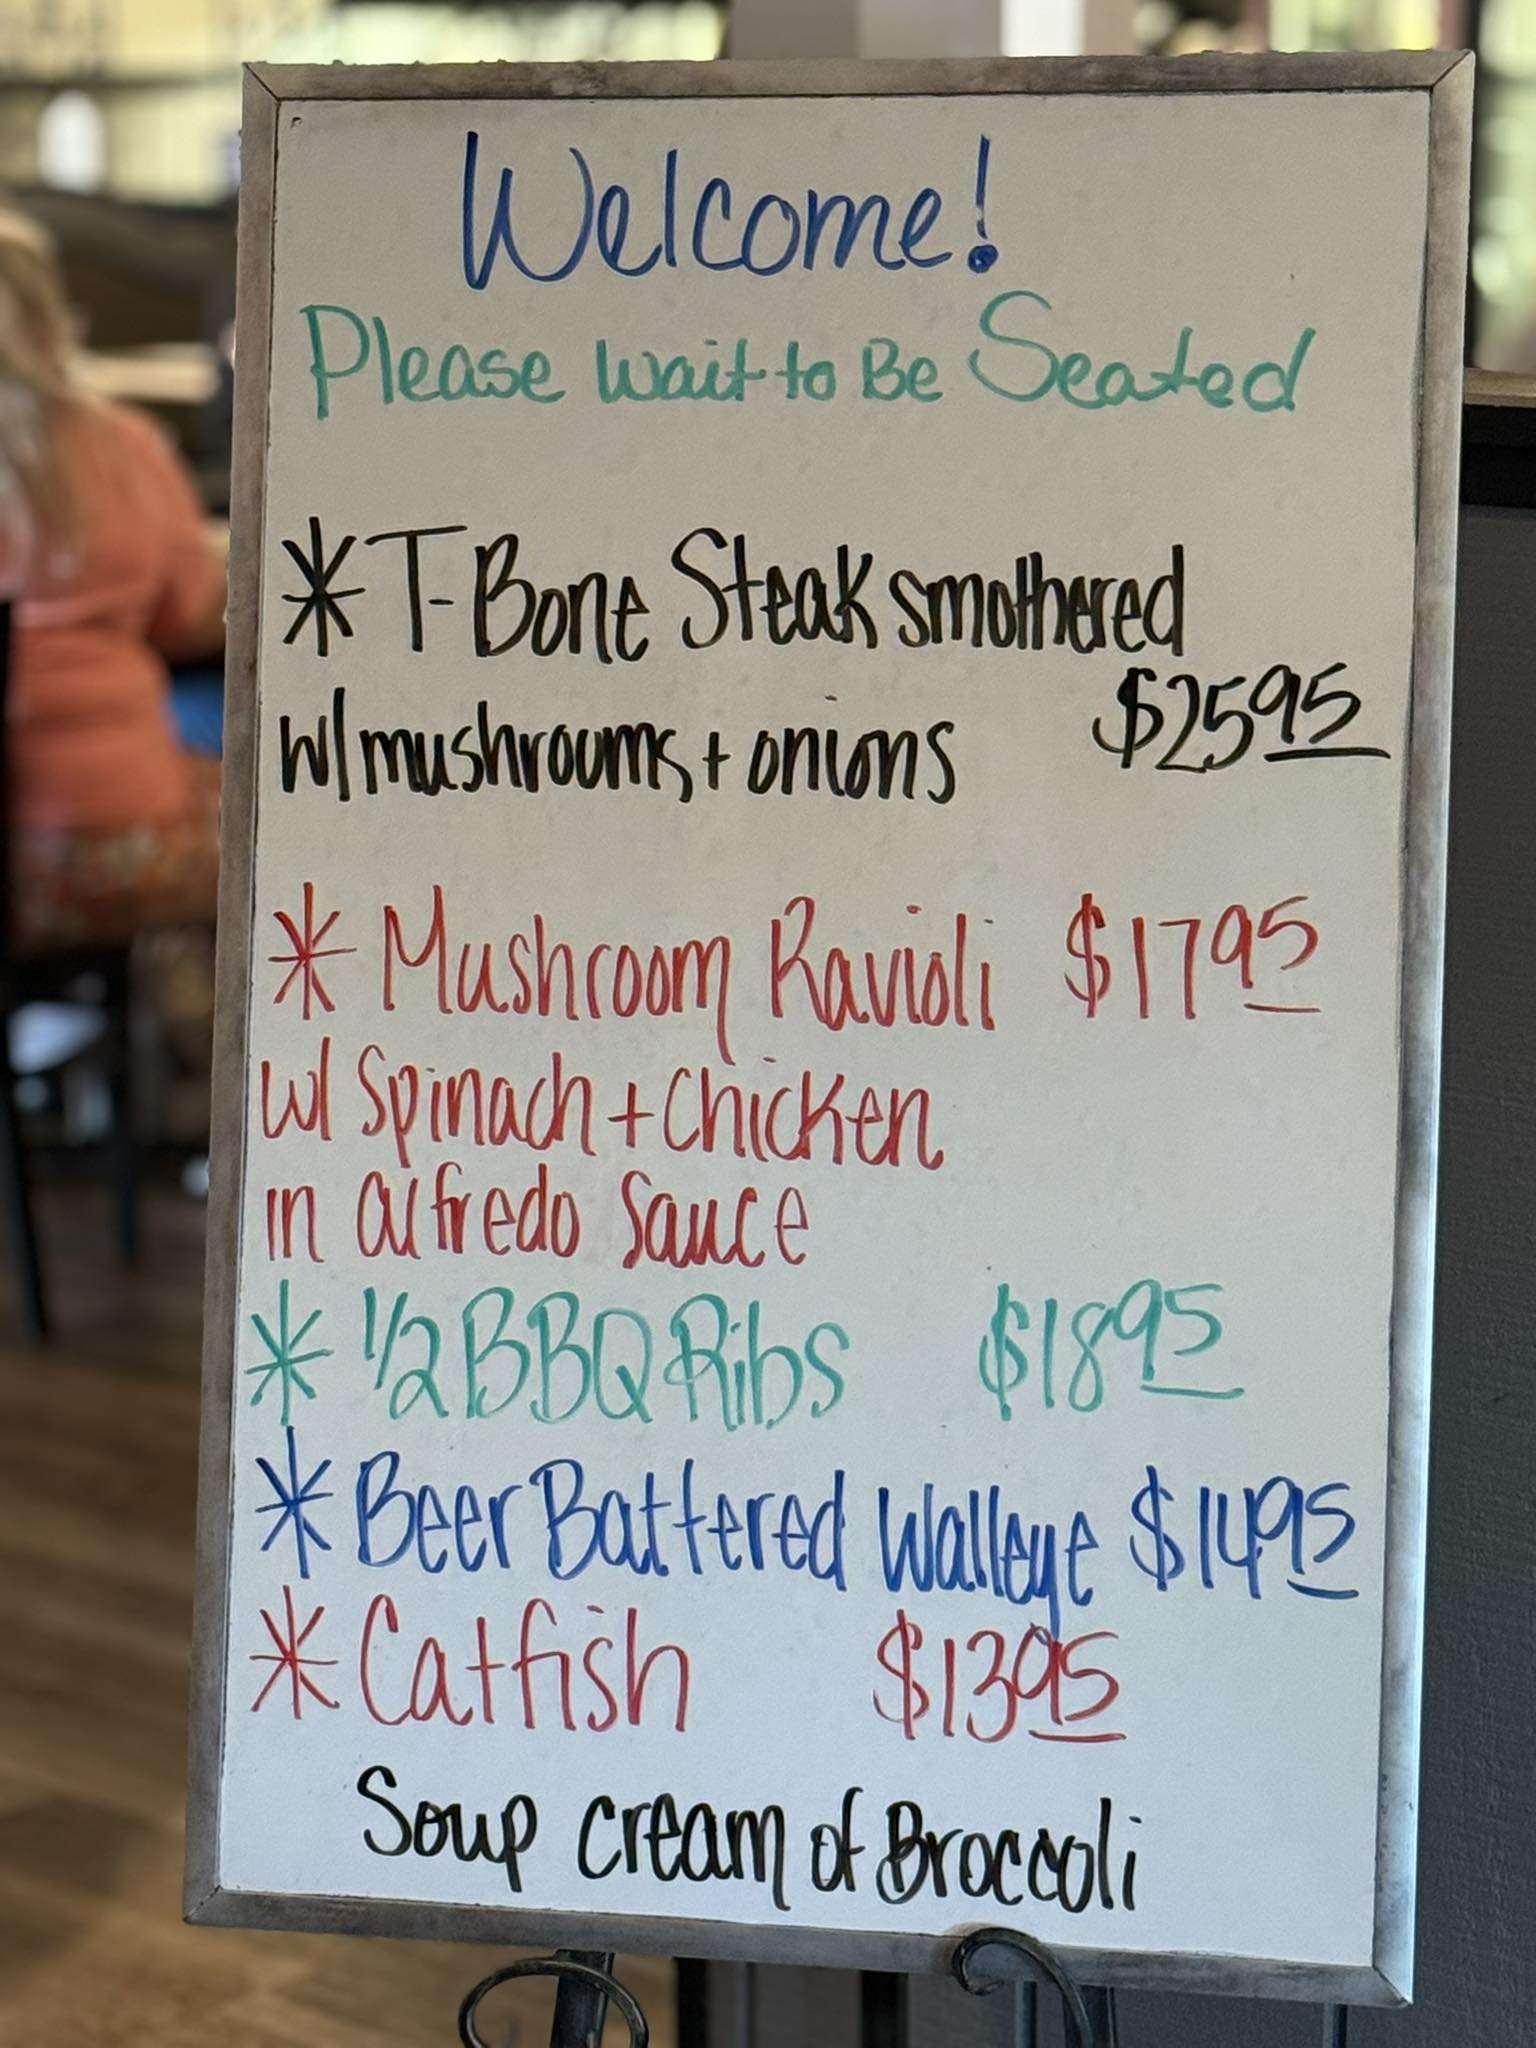 Welcome!
Please Wait to Be Seated
* T-Bone Steak smothered
w/ mushrooms + onions $25 95
* Mushroom Ravioli $17 95
w/ Spinach + Chicken
in alfredo Sauce
* 1/2 BBQ Ribs $18 95
* Beer Battered Walleye $14 95
* Catfish $13 95
Soup cream of Broccoli